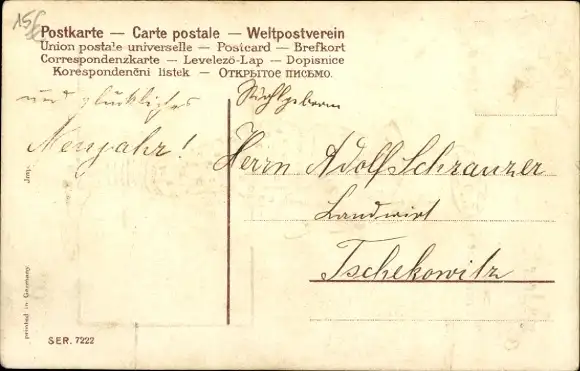 15€
Postkarte — Carte postale — Weltpostverein
Union postale universelle — Postcard — Brefkort
Correspondenzkarte — Levelező-Lap — Dopisnice
Korespondenční listek — ОТКРЫТОЕ ПИСЬМО.
und glückliches
Neujahr!
Herrn Adolf Schranzer
Landwirt
Tschekowitz
Imp.
printed in Germany.
SER. 7222